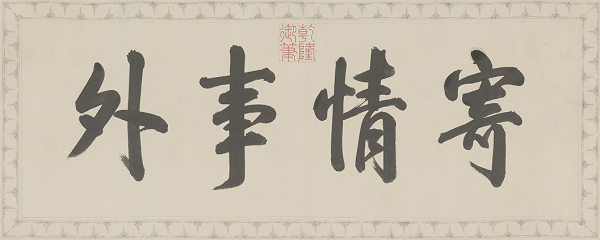 寄情事外
乾隆
御筆